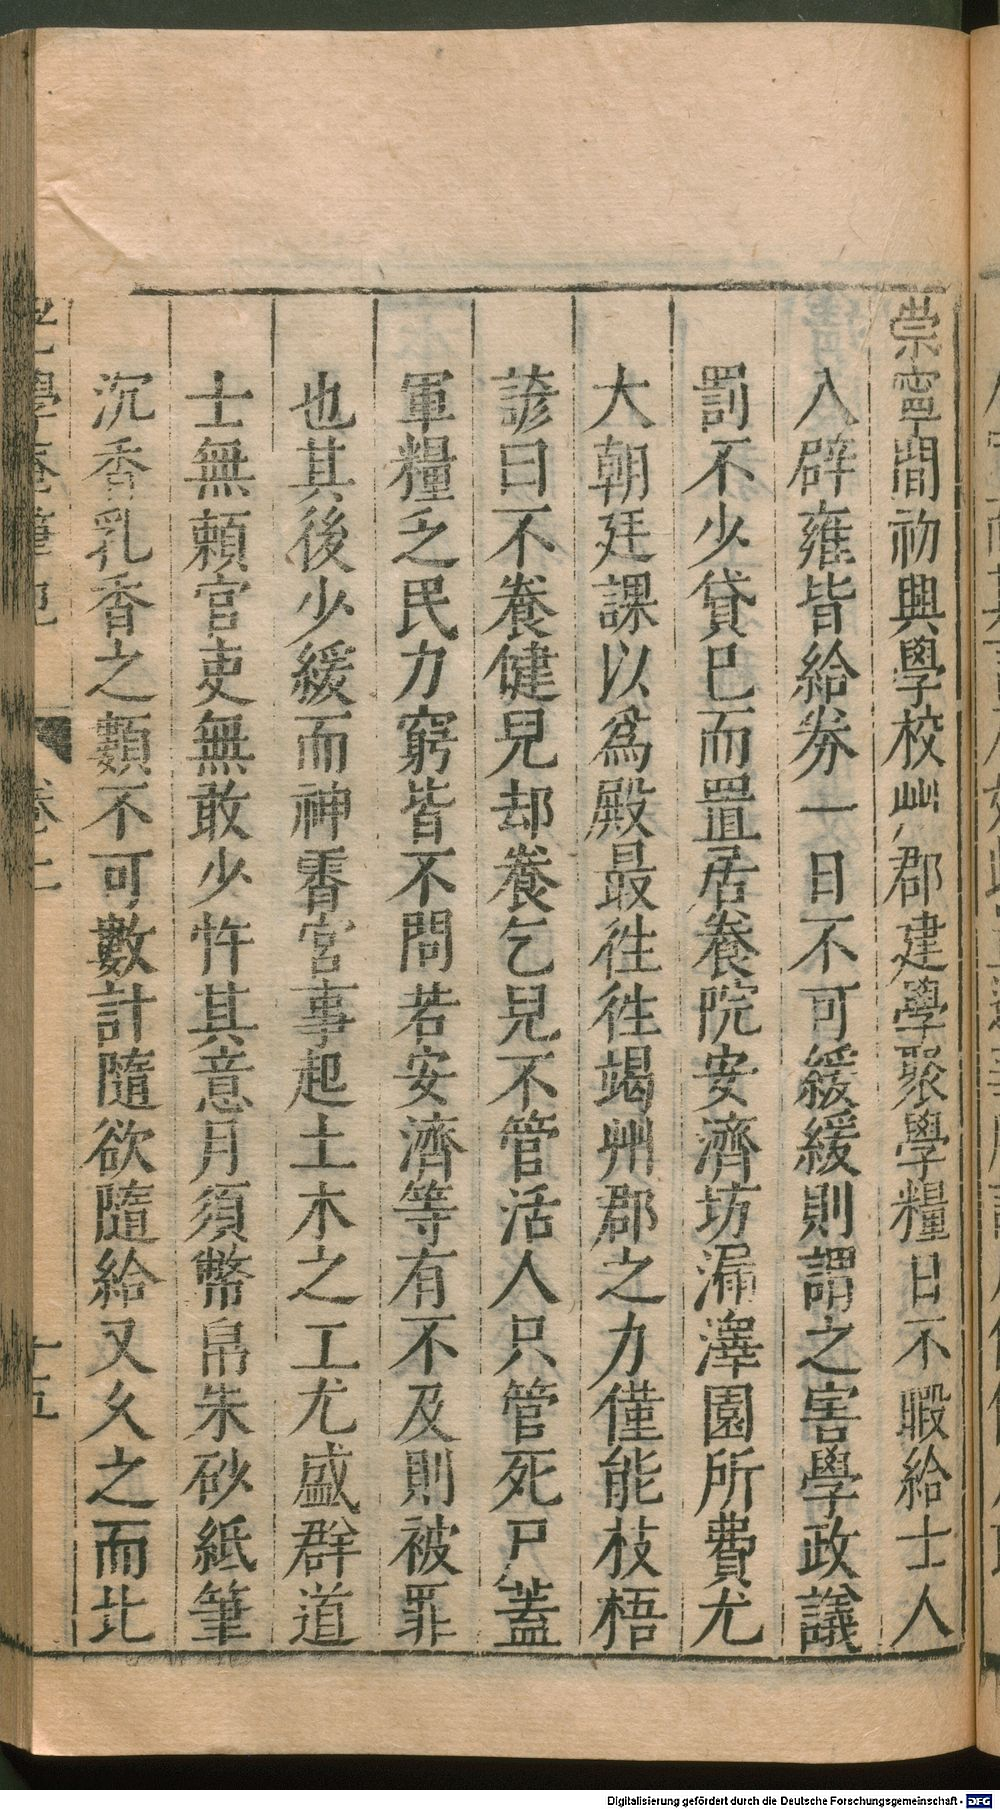 崇寧間初興學校州郡建學聚學糧日不暇給士人
入辟雍皆給券一日不可緩緩則謂之害學政議
罰不少貸已而置居養院安濟坊漏澤園所費尤
大朝廷課以為殿最往往竭州郡之力僅能枝梧
諺曰不養健兒却養乞兒不管活人只管死尸蓋
軍糧乏民力窮皆不問若安濟等有不及則被罪
也其後少緩而神霄宮事起土木之工尤盛群道
士無賴官吏無敢少忤其意月須幣帛朱砂紙筆
沉香乳香之類不可數計隨欲隨給又久之而北
老學庵筆記 卷二 十五
Digitalisierung gefördert durch die Deutsche Forschungsgemeinschaft - DFG